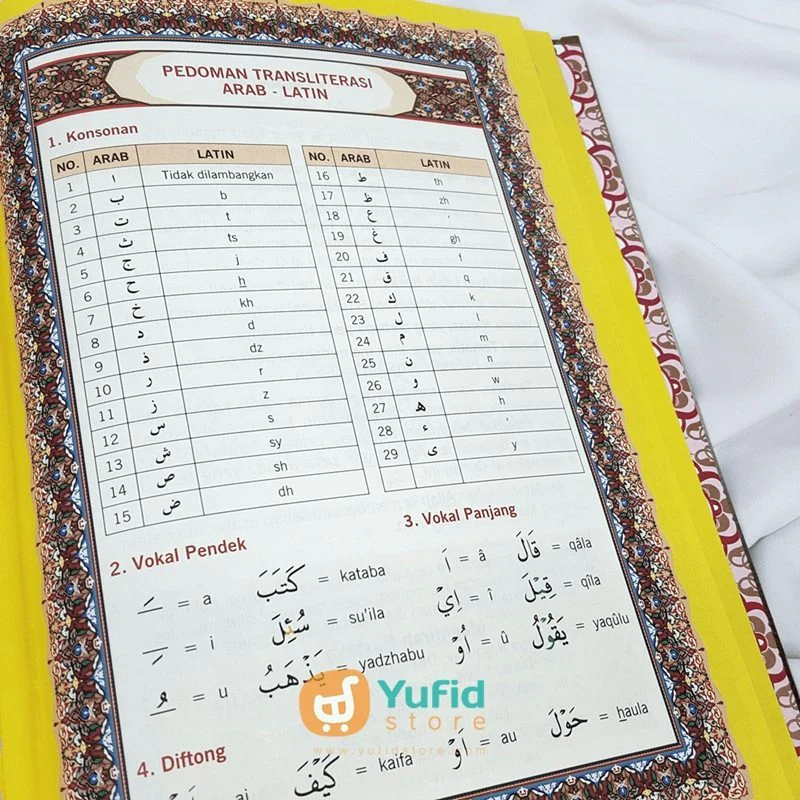 PEDOMAN TRANSLITERASI
ARAB - LATIN
1. Konsonan
NO. ARAB LATIN
1 ا Tidak dilambangkan
2 ب b
3 ت t
4 ث ts
5 ج j
6 ح h
7 خ kh
8 د d
9 ذ dz
10 ر r
11 ز z
12 س s
13 ش sy
14 ص sh
15 ض dh
NO. ARAB LATIN
16 ط th
17 ظ zh
18 ع ‘
19 غ gh
20 ف f
21 ق q
22 ك k
23 ل l
24 م m
25 ن n
26 و w
27 ه h
28 ء ’
29 ى y
2. Vokal Pendek
ـَ = a كَتَبَ = kataba
ـِ = i سُئِلَ = su'ila
ـُ = u يَذْهَبُ = yadzhabu
3. Vokal Panjang
اَ = â قَالَ = qâla
اِيْ = î قِيْلَ = qîla
اُوْ = û يَقُوْلُ = yaqûlu
4. Diftong
ai كَيْفَ = kaifa
اَوْ = au حَوْلَ = haula
Yufid
store
www.yufidstore.com